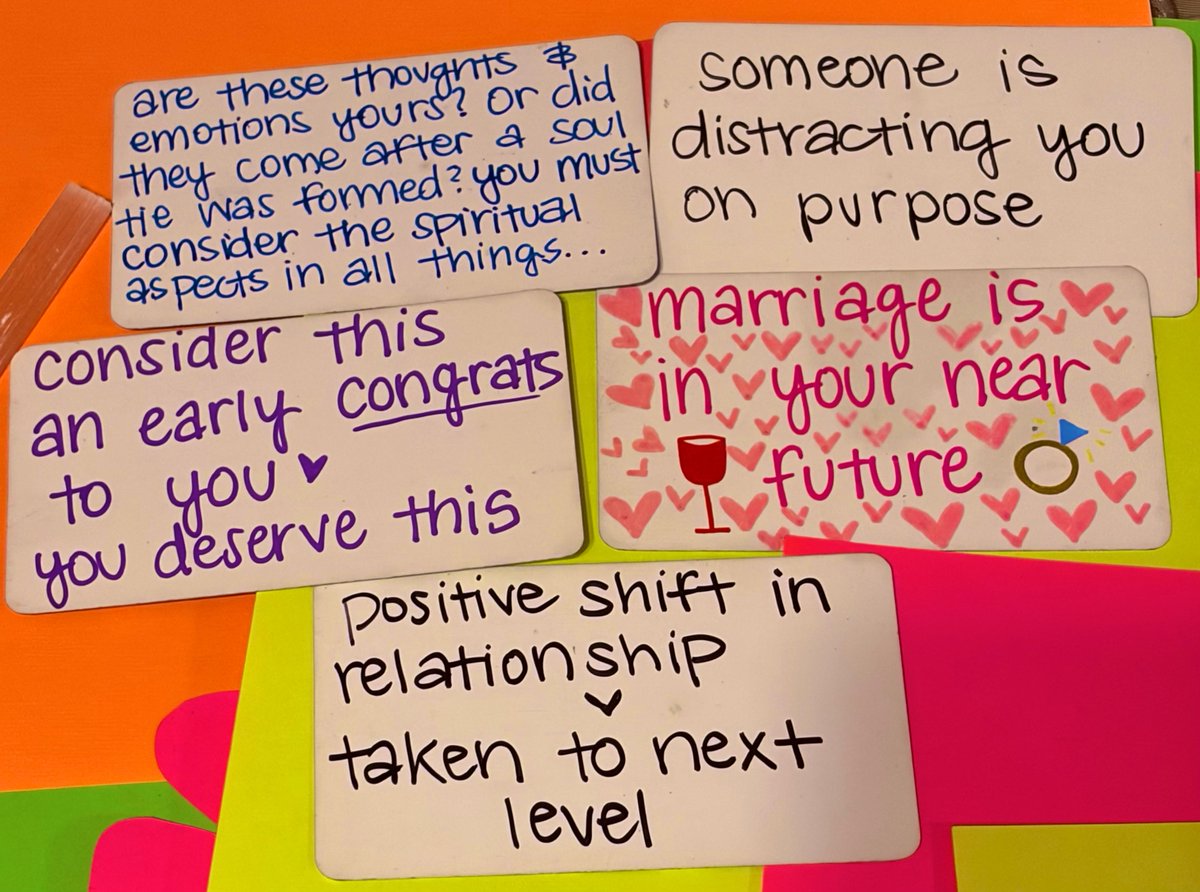 are these thoughts &
emotions yours? or did
they come after a soul
tie was formed? you must
consider the spiritual
aspects in all things...
someone is
distracting you
on purpose
consider this
an early congrats
to you ♥
you deserve this
marriage is
in your near
future
positive shift in
relationship
taken to next
level